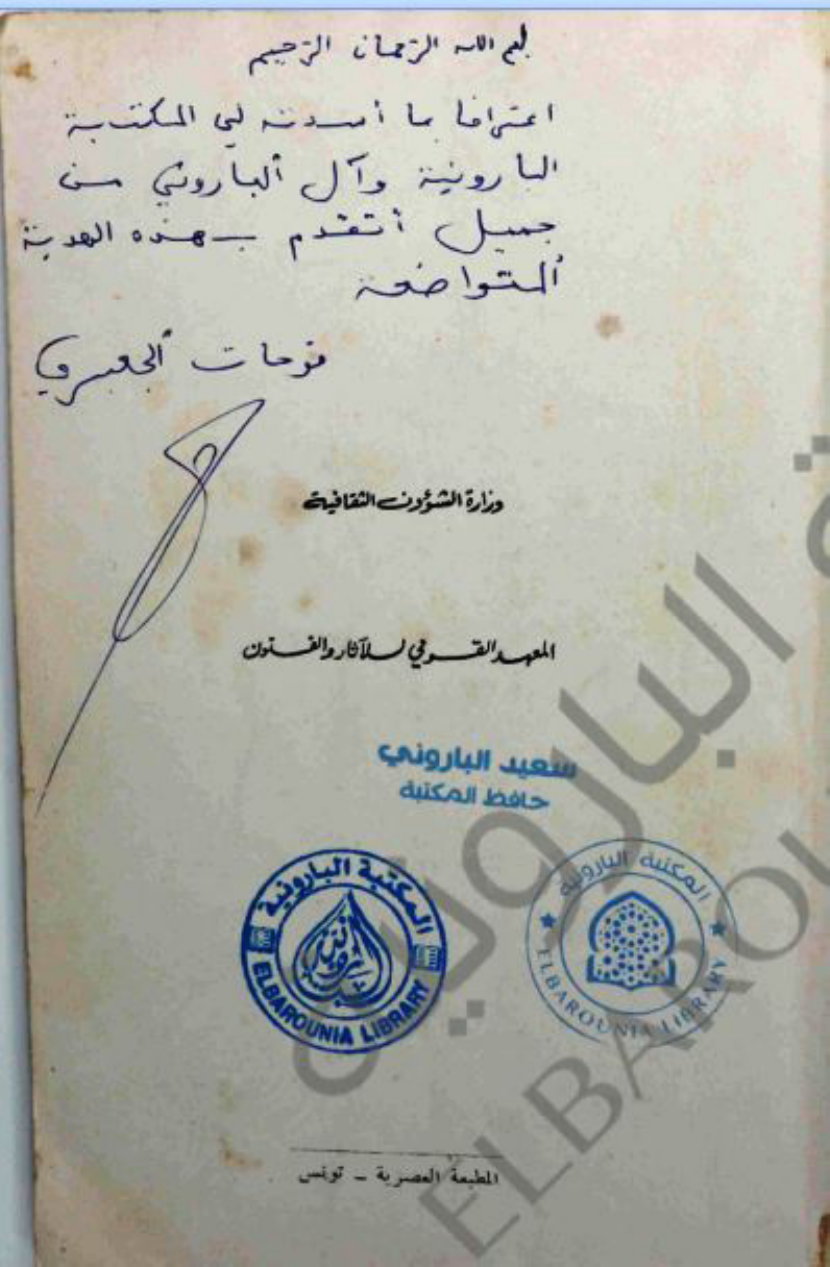 بسم الله الرحمان الرحيم
اعترافا بما أسدته لي المكتبة
البارونية وآل الباروني من
جميل أتقدم بهذه الهدية
المتواضعة
فرحات الجعبيري
وزارة الشؤون الثقافية
المعهد القومي للآثار والفنون
سعيد الباروني
حافظ المكتبة
المكتبة البارونية
ELBAROUNIA LIBRARY
المكتبة البارونية
ELBAROUNIA LIBRARY
المطبعة العصرية ــ تونس
البارونية
ELBAROU